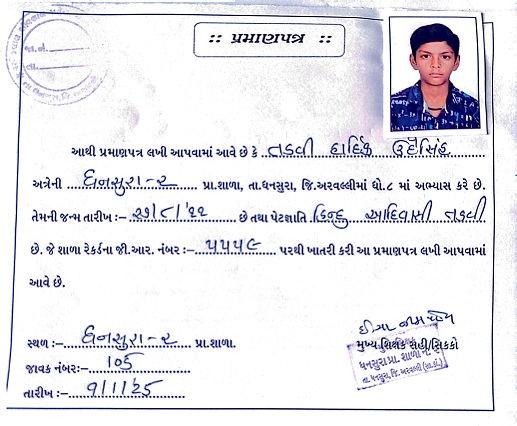 :: પ્રમાણપત્ર ::
જા.નં.
તા.
આથી પ્રમાણપત્ર લખી આપવામાં આવે છે કે તડવી હાર્દિક ઉદેસિંહ
અત્રેની ધનસુરા-૨ પ્રા.શાળા, તા.ધનસુરા, જિ.અરવલ્લીમાં ધો.૮ માં અભ્યાસ કરે છે.
તેમની જન્મ તારીખ :- ૨૭/૮/૧૧ છે તથા પેટાજ્ઞાતિ હિન્દુ આદિવાસી તડવી
છે. જે શાળા રેકર્ડના જી.આર. નંબર :- ૫૫૫૯ પરથી ખાતરી કરી આ પ્રમાણપત્ર લખી આપવામાં
આવે છે.
સ્થળ :- ધનસુરા-૨ પ્રા.શાળા.
જાવક નંબર:- 105
તારીખ :- ૧/11/25
મુખ્ય શિક્ષક સહી/સિક્કો
ધનસુરા પ્રા. શાળા નં. ૨
તા. ધનસુરા, જિ.અરવલ્લી (સા.કાં.)